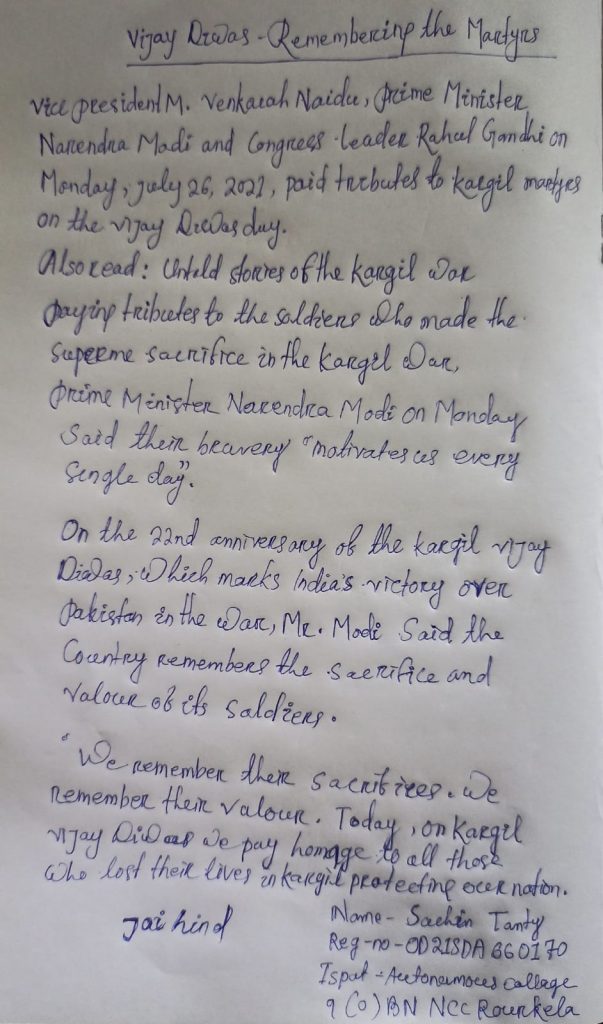 Vijay Diwas - Remembering the Martyrs
Vice president M. Venkaiah Naidu, Prime Minister
Narendra Modi and Congress leader Rahul Gandhi on
Monday, july 26, 2021, paid tributes to kargil martyrs
on the vijay Diwas day.
Also read : Untold stories of the kargil war
paying tributes to the soldiers who made the
Superme sacrifice in the kargil War,
prime Minister Narendra Modi on Monday
Said their bravery "motivates us every
single day".
On the 22nd anniversary of the kargil vijay
Diwas, which marks India's victory over
Pakistan in the war, Mr. Modi Said the
Country remembers the sacrifice and
valour of its soldiers.
"We remember their sacrifices. We
remember their valour. Today, on Kargil
vijay Diwas we pay homage to all those
who lost their lives in kargil protecting our nation.
jai hind
Name - Sachin Tanty
Reg-no - OD21SDA660170
Ispat - Autonomous collage
9 (O) BN NCC Rourkela